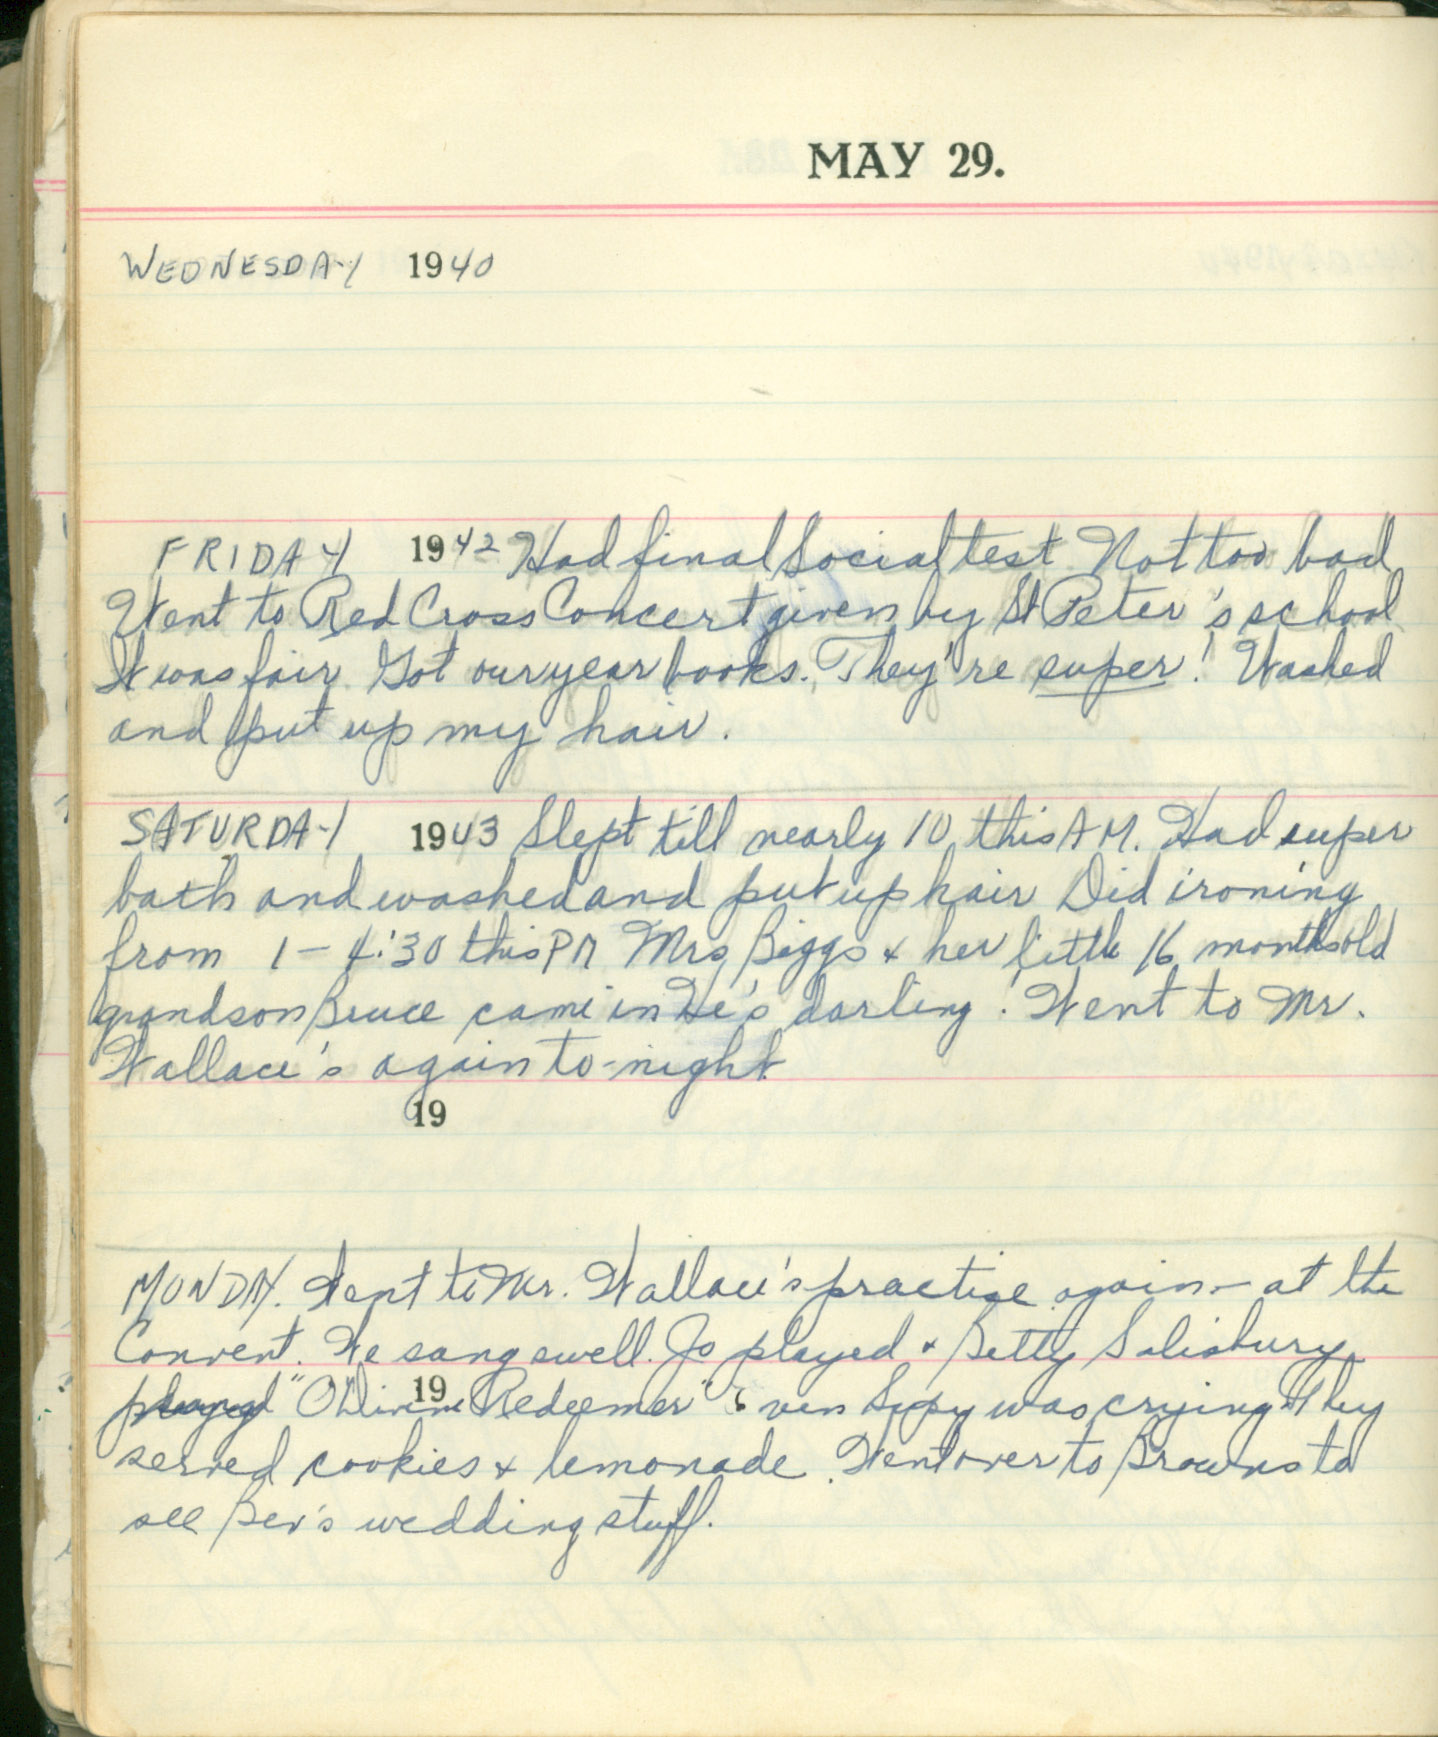 MAY 29.
WEDNESDAY 1940
FRIDAY 1942 Had final Social test. Not too bad
Went to Red Cross Concert given by St Peter's school
It was fair. Got our year books. They're super! Washed
and put up my hair.
SATURDAY 1943 Slept till nearly 10 this AM. Had super
bath and washed and put up hair Did ironing
from 1-4:30 this PM Mrs Biggs & her little 16 months old
grandson Bruce came in He's darling! Went to Mr.
Wallace's again to-night
19
MONDAY. Went to Mr. Wallace's practise again - at the
Convent. We sang swell. Jo played & Betty Salisbury
"Oh Divine Redeemer" even was crying They
19
served cookies & lemonade. Went over to Browns to
see Bev's wedding stuff.